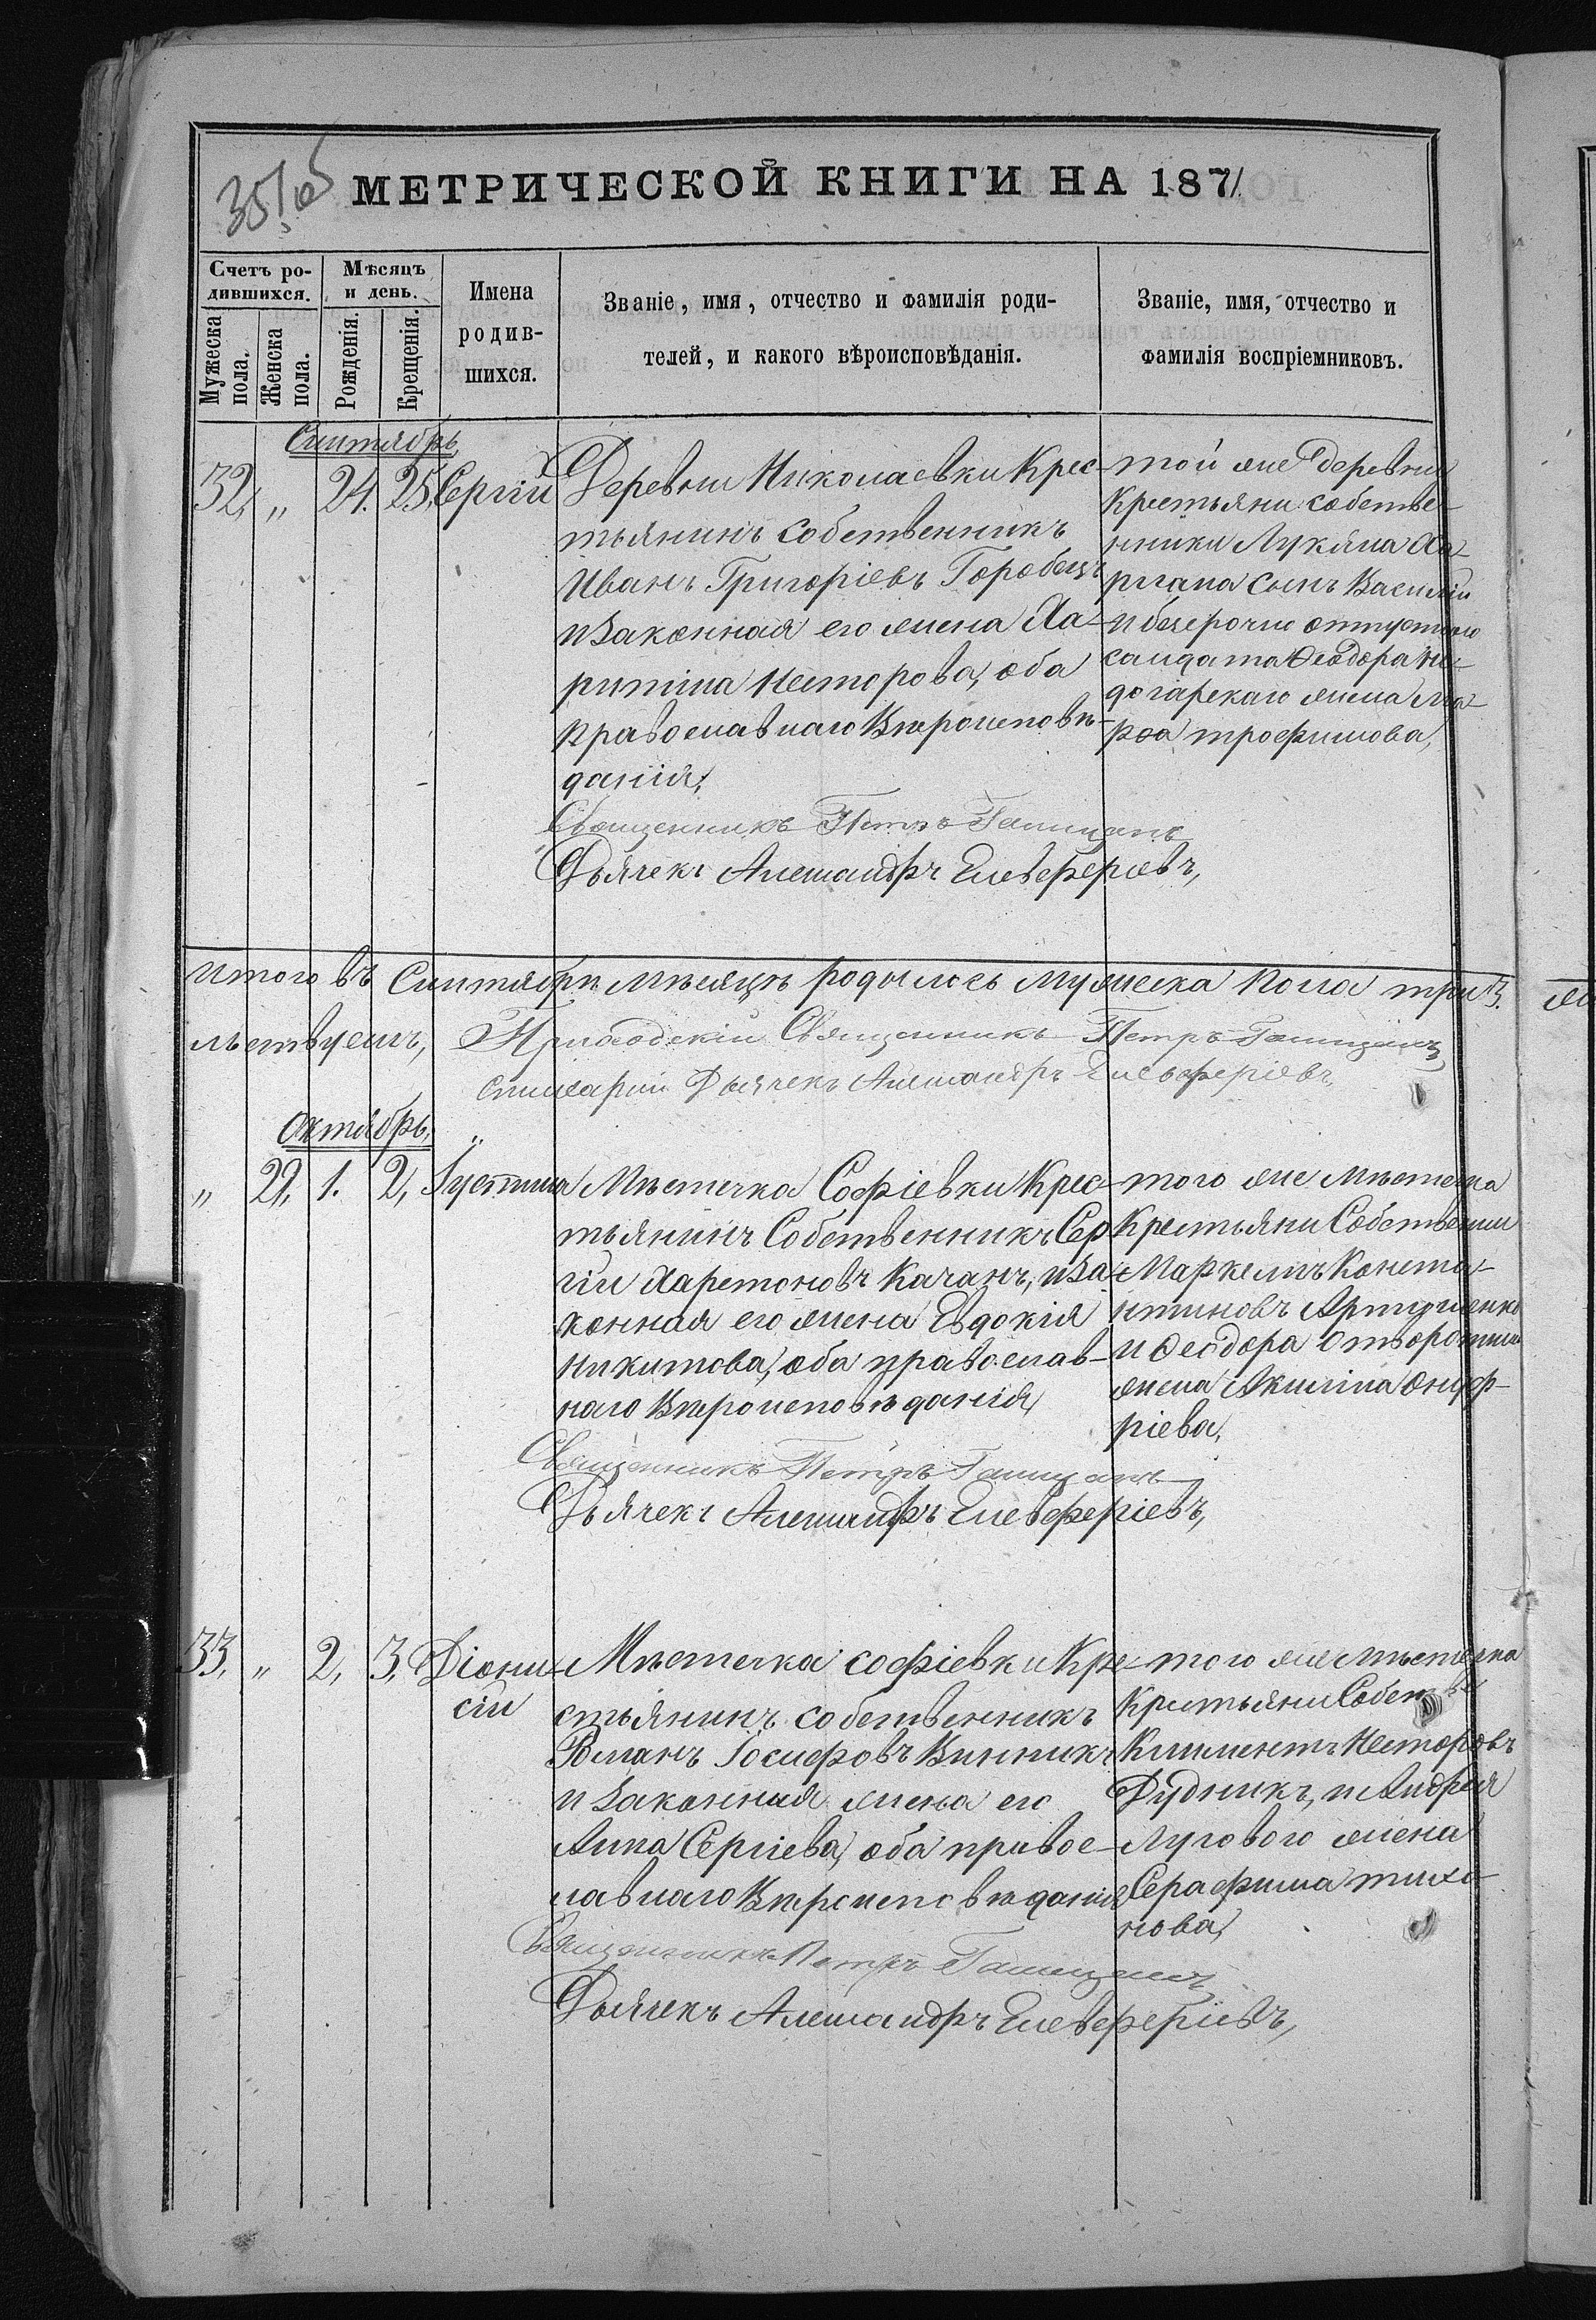 351 об
МЕТРИЧЕСКОЙ КНИГИ НА 1871
Счетъ ро-
дившихся.
Мужеска пола.
Женска пола.
Мѣсяцъ
и день.
Рожденія.
Крещенія.
Имена
родив-
шихся.
Званіе, имя, отчество и фамилія роди-
телей, и какого вѣроисповѣданія.
Званіе, имя, отчество и
фамилія воспріемниковъ.
Синтябрь
32, „ 24. 25, Сергій
Деревни Николаевки Крес-
тьянинъ собственникъ
Иванъ Григоріевъ Горобецъ
и законная его жена Ха-
ритина Несторова, оба
православнаго Вѣроисповѣ-
данія,
Священникъ Петръ
Дьячекъ Александръ Елевферіевъ,
той же деревни
Крестьяни собстве-
нники Лукяна
сынъ Василій
и безсрочно отпустного
салдата Феодора
жена Ма-
рфа трофимова,
Итого въ Синтябрѣ мѣсяцѣ родылось мужеска пола три 3.
льствуемъ, Приходскій Священникъ Петръ
Дьячекъ Александръ Елевферіевъ,
Октябрь,
„ 29, 1. 2, Іустина
Мѣстечка Софіевки Крес-
тьянинъ Собственникъ Сер
гій Харетоновъ Качанъ, и за-
конная его жена Евдокія
Никитова, оба православ-
наго Вѣроисповѣданія,
Священникъ Петръ
Дьячекъ Александръ Елевферіевъ,
того же Мѣстечка
Крестьяни Собственни
Маркелъ Конста-
нтиновъ
и Феодора
жена Акилина Онуф-
ріева,
33, „ 2, 3, Діони-
сій
Мѣстечка софіевки Кре-
стьянинъ собственникъ
Романъ Іосифовъ Винникъ
и законная жена его
Анна Сергіева, оба правос-
лавнаго Вѣроисповѣданія
Священникъ Петръ
Дьячекъ Александръ Елевферіевъ,
того же мѣстечка
Крестьяни Собств
Климентъ Несторовъ
Дудникъ, и Андрея
Лугового жена
Серафима тихо-
нова,